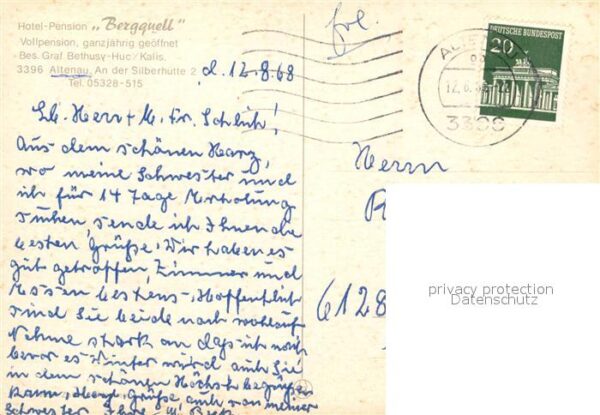 Hotel-Pension „Bergquell"
Vollpension, ganzjährig geöffnet
Bes. Graf Bethusy-Huc/Kalis.
3396 Altenau, An der Silberhütte 2
Tel. 05328-515
d. 12.8.68
Lb. Herr + Fr.
Aus dem schönen Harz,
wo meine Schwester und
ich für 14 Tage Erholung
suchen, sende ich Ihnen die
besten Grüße. Wir haben es
gut getroffen, Zimmer und
Essen bestens. Hoffentlich
sind Sie beide noch wohlauf
Nehme stark an daß ich noch
bevor es Winter wird auch Sie
in dem schönen Höchst begrüßen
kann, Grüße auch von meiner
Schwester Ihre
DEUTSCHE BUNDESPOST
20
3396
Herrn
6128
privacy protection
Datenschutz